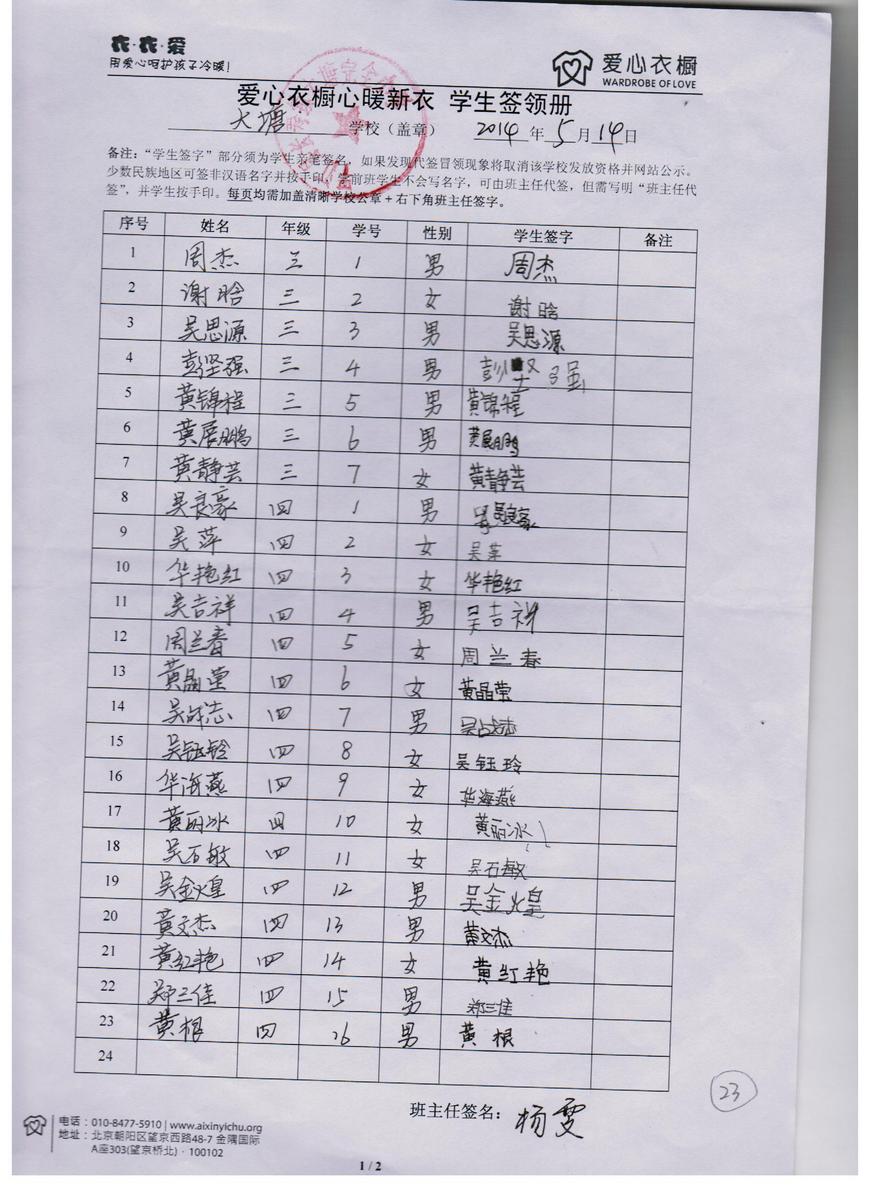 衣·衣·爱
用爱心呵护孩子冷暖!
爱心衣橱
WARDROBE OF LOVE
爱心衣橱心暖新衣 学生签领册
大塘 学校（盖章） 2014 年 5 月 14 日
备注：“学生签字”部分须为学生亲笔签名，如果发现代签冒领现象将取消该学校发放资格并网站公示。
少数民族地区可签非汉语名字并按手印。学前班学生不会写名字，可由班主任代签，但需写明“班主任代
签”，并学生按手印。每页均需加盖清晰学校公章+右下角班主任签字。
序号 姓名 年级 学号 性别 学生签字 备注
1 周杰 三 1 男 周杰
2 谢晗 三 2 女 谢晗
3 吴思源 三 3 男 吴思源
4 彭坚强 三 4 男 彭坚强
5 黄锦程 三 5 男 黄锦程
6 黄展鹏 三 6 男 黄展鹏
7 黄静芸 三 7 女 黄静芸
8 吴良豪 四 1 男 吴良豪
9 吴萍 四 2 女 吴萍
10 华艳红 四 3 女 华艳红
11 吴吉祥 四 4 男 吴吉祥
12 周兰春 四 5 女 周兰春
13 黄晶莹 四 6 女 黄晶莹
14 四 7 男
15 吴钰铃 四 8 女 吴钰玲
16 华海燕 四 9 女 华海燕
17 黄丽冰 四 10 女 黄丽冰
18 吴石敏 四 11 女 吴石敏
19 吴金煌 四 12 男 吴金煌
20 黄文杰 四 13 男 黄文杰
21 黄红艳 四 14 女 黄红艳
22 郑三佳 四 15 男 郑三佳
23 黄根 四 16 男 黄根
24
23
班主任签名：杨雯
电话：010-8477-5910 | www.aixinyichu.org
地址：北京朝阳区望京西路48-7 金隅国际
A座303(望京桥北)·100102
1 / 2